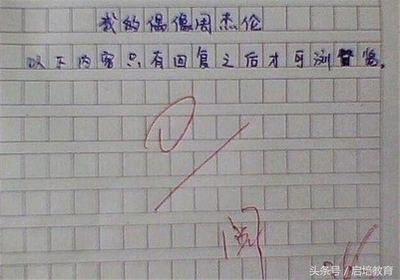 我的偶像周杰伦
以下内容只有回复之后才可浏览。
阅
头条号/启培教育